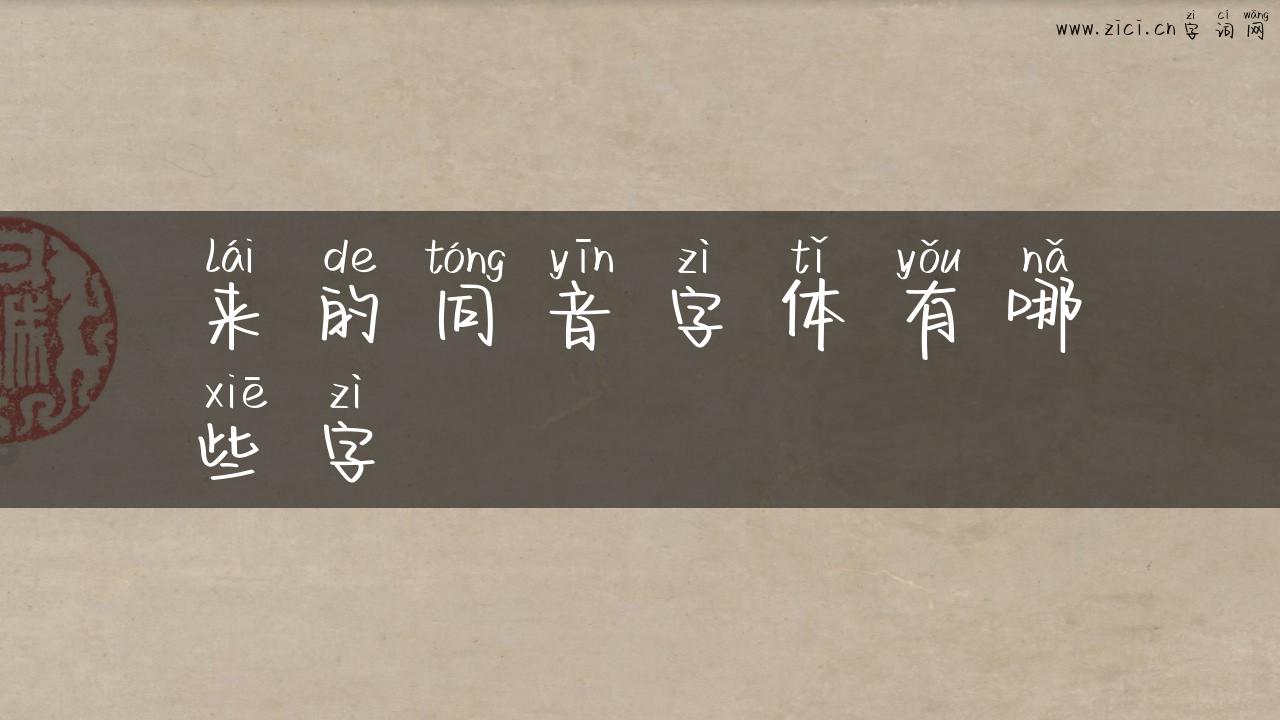 zì cí wǎng
www.zici.cn 字词网
lái de tóng yīn zì tǐ yǒu nǎ
来的同音字体有哪
xiē zì
些字